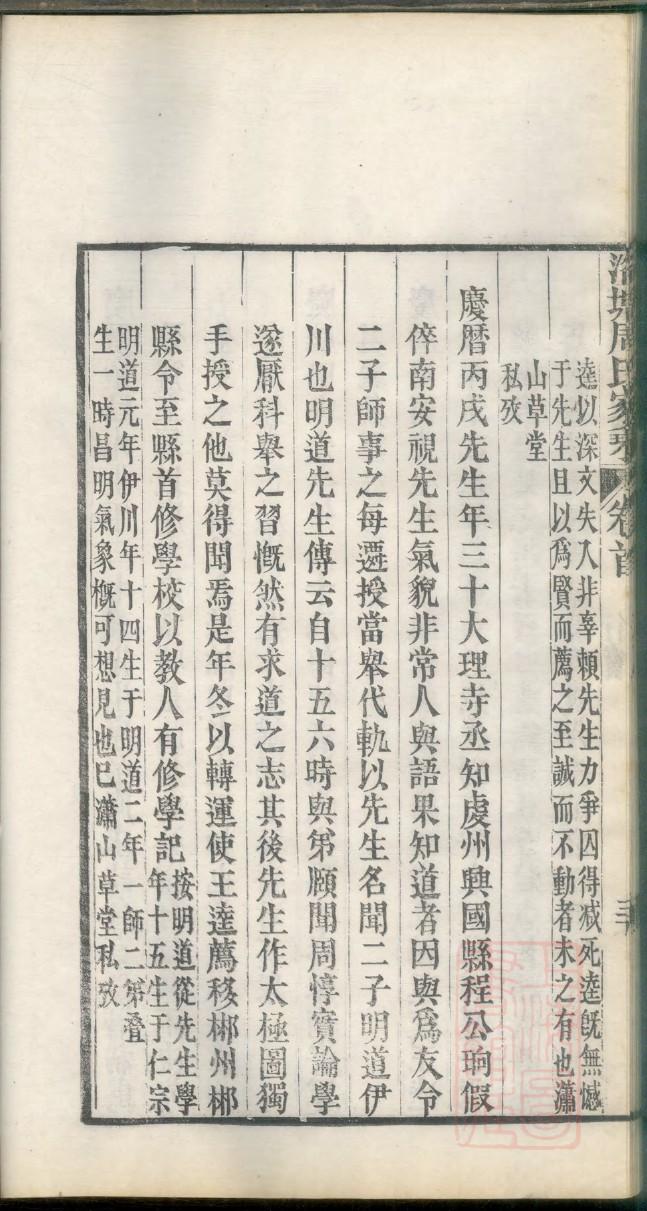 周氏家乘
卷首
逵以深文失入非辜賴先生力爭囚得减死逵旣無憾
于先生且以爲賢而薦之至誠而不動者未之有也瀟
山草堂
私攷
慶曆丙戌先生年三十大理寺丞知虔州興國縣程公珦假
倅南安視先生氣貌非常人與語果知道者因與爲友令
二子師事之每遷授當舉代軌以先生名聞二子明道伊
川也明道先生傳云自十五六時與弟頤聞周惇實論學
遂厭科舉之習慨然有求道之志其後先生作太極圖獨
手授之他莫得聞焉是年冬以轉運使王逵薦移郴州郴
縣令至縣首修學校以教人有修學記
按明道從先生學
年十五生于仁宗
明道元年伊川年十四生于明道二年一師二弟叠
生一時昌明氣象概可想見也已瀟山草堂私攷